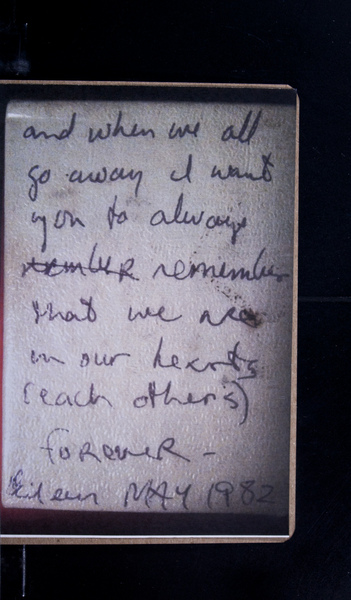 and when we all
go away I want
you to always
remember
that we are
in our hearts
(each others)
FOREVER -
Eileen MAY 1982